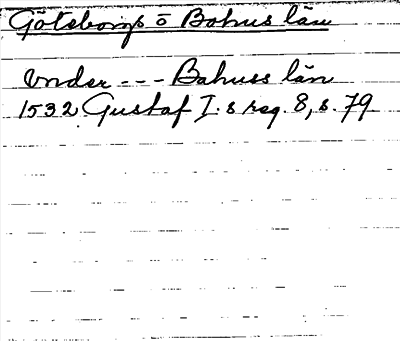 Göteborgs o Bohus län
Vnder --- Bahuss län
1532 Gustaf I.s reg. 8, s. 79